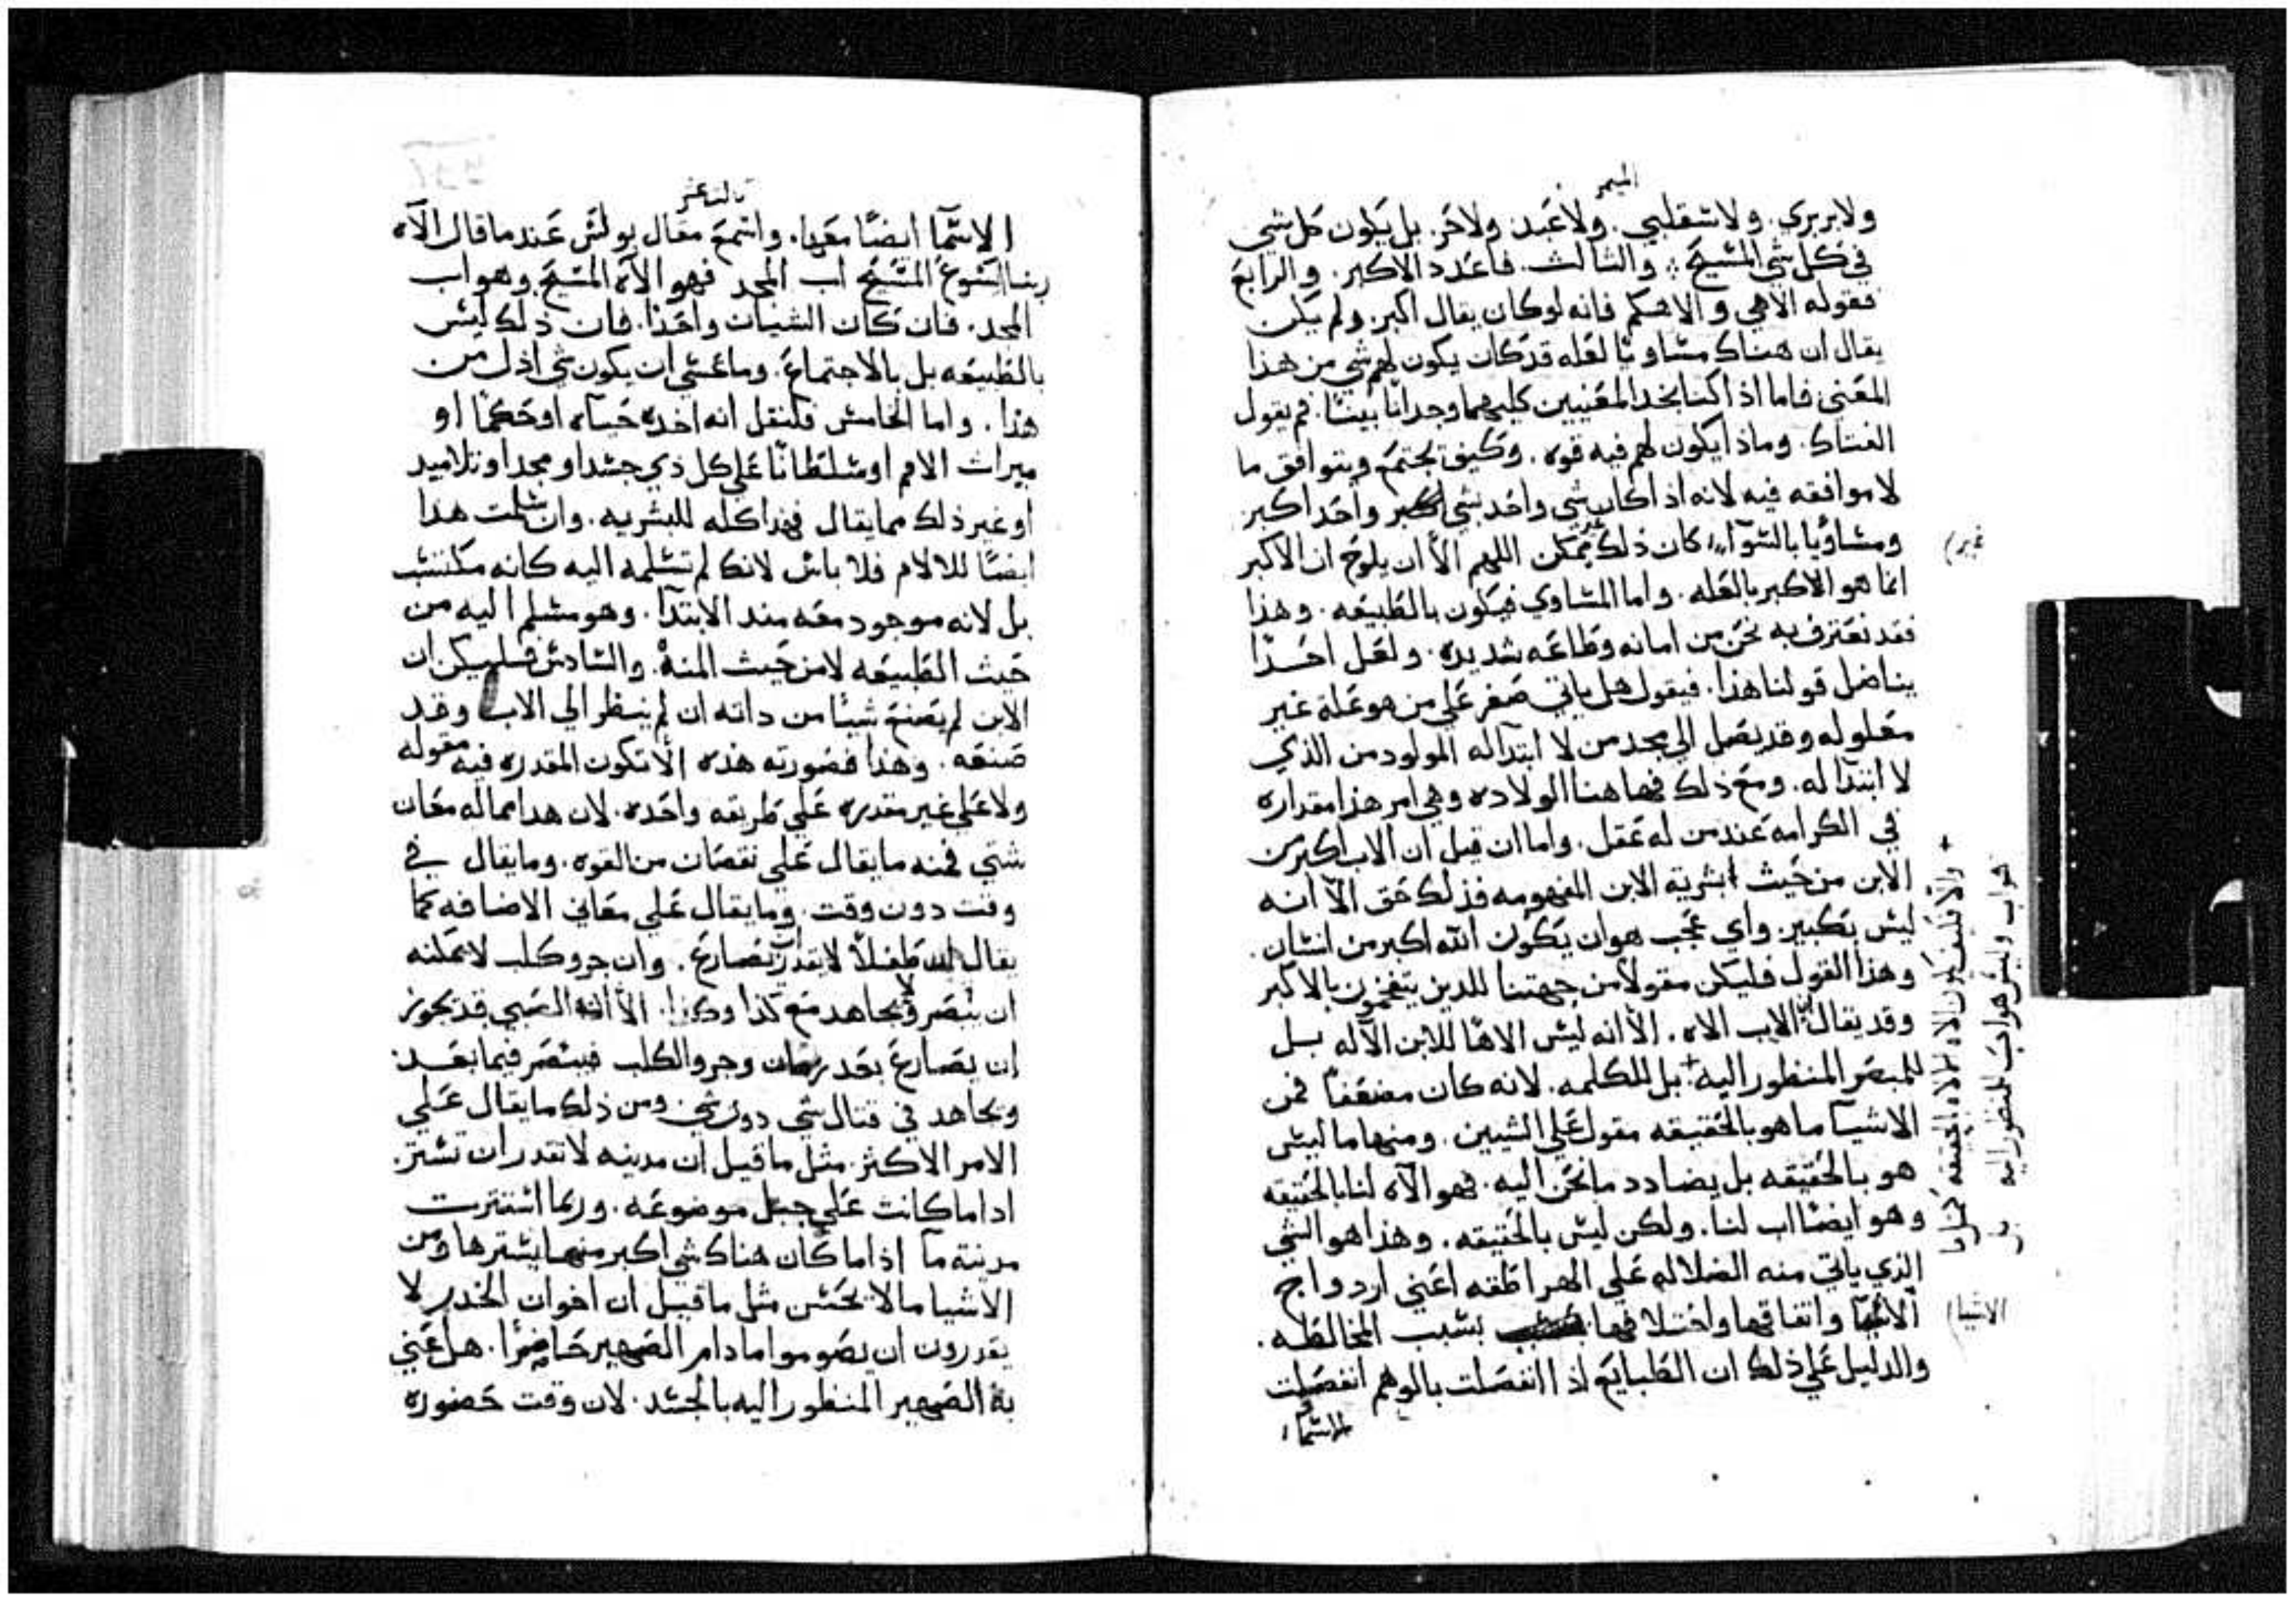 الميمر
ولا بربري. ولا سقلبي. ولا عبد ولا حر. بل يكون كل شي
في كل شي المسيح. والثالث. فاعدد الاكبر. والرابع
فقوله الاهي والاهكم فانه لو كان يقال اكبر. ولم يكن
يقال ان هناك مساويا لعله قد كان يكون لهم شي من هذا
المعني فاما اذا كنا نجد المعنيين كليهما وجدانا بينا. فم يقول
الفتاك. وماذا يكون لهم فيه قوه. وكيف يجتمع ويتوافق ما
لا موافقه فيه لانه اذا كان شي واحد بشي اكبر واحد اكبر
ومساويا بالسوآ. كان ذلك غير ممكن اللهم الا ان يلوح ان الاكبر
(غير)
انما هو الاكبر بالعله. واما المساوي فيكون بالطبيعه. وهذا
فقد نعترف به نحن من امانه وطاعه شديده. ولعل احدا
يناضل قولنا هذا. فيقول هل ياتي صغر علي من هو عله غير
معلوله وقد يصل الي مجد من لا ابتدآ له المولود من الذي
لا ابتدآ له. ومع ذلك فها هنا الولاده وهي امر هذا مقداره
في الكرامه عند من له عقل. واما ان قيل ان الاب اكبر من
الابن من حيث بشرية الابن المفهومه فذلك حق الا انه
ليس بكبير. واي عجب هو ان يكون الله اكبر من انسان.
وهذا القول فليكن مقولا من جهتنا للدين يتفخمون بالاكبر
وقد يقال الاب الاه. الا انه ليس الاها للابن الآله بل
للمبصر المنظور اليه + بل للكلمه. لانه كان مضعفا فمن
الاشيآ ما هو بالحقيقه مقول علي الشيين. ومنها ما ليس
هو بالحقيقه بل يضادد ما نحن اليه. فهو الآه لنا بالحقيقه
وهو ايضا اب لنا. ولكن ليس بالحقيقه. وهذا هو الشي
الذي ياتي منه الضلاله علي الهراطقه اعني ازدواج
الاسمآ واتفاقها واختلافها بسبب المخالطه.
والدليل علي ذلك ان الطبايع اذا انفصلت بالوهم انفصلت
الاسمآ
+ والا فكيف يكون الاه الالاه بالحقيقه
هو اب وليس هو اب للمنظور اليه بل
(الاشيا)
ثالث عشر
الاسمآ ايضا معها. واسمع مقال بولس عند ما قال الآه
ربنا اليسوع المسيح اب المجد فهو الآه المسيح وهو اب
المجد. فان كان الشيان واحدا. فان ذلك ليس
بالطبيعه بل بالاجتماع. وما عسي ان يكون شي اذل من
هذا. واما الخامس فلنقل انه اخذه حياه او حكما او
ميراث الامم او سلطانا علي كل ذي جسد او مجد او تلاميد
او غير ذلك مما يقال فهذا كله للبشريه. وان سلمت هدا
ايضا للالام فلا باس لانك لم تسلمه اليه كانه مكتسب
بل لانه موجود معه مند الابتدآ. وهو مسلم اليه من
حيث الطبيعه لا من حيث المنة. والسادس فليكن ان
الابن لم يصنع شيئا من داته ان لم ينظر الي الاب وقد
صنعه. وهذا فصورته هذه الا تكون المقدره فيه مقوله
ولا علي غير مقدره علي طريقه واحده. لان هدا مما له معان
شتي فمنه ما يقال علي نقصان من القوه. وما يقال في
وقت دون وقت. وما يقال علي معاني الاضافه كما
يقال ان طفلا لا يقدر ان يصارع. وان جرو كلب لا يمكنه
ان يبصر ولا يجاهد مع كذا وكذا. الا ان الصبي قد يجوز
ان يصارع بعد زمان وجرو الكلب فيبصر فيما بعد
ويجاهد في قتال شي دون شي. ومن ذلك ما يقال علي
الامر الاكثر. مثل ما قيل ان مدينه لا تقدر ان تستتر
ادا ما كانت علي جبل موضوعه. وربما استترت
مدينة مآ اذا ما كان هناك شي اكبر منها يسترها ومن
الاشيا ما لا يحسن مثل ما قيل ان اخوان الخدر لا
يقدرون ان يصوموا ما دام الصهير حاضرا. هل عني
به الصهير المنظور اليه بالجسد. لان وقت حضوره